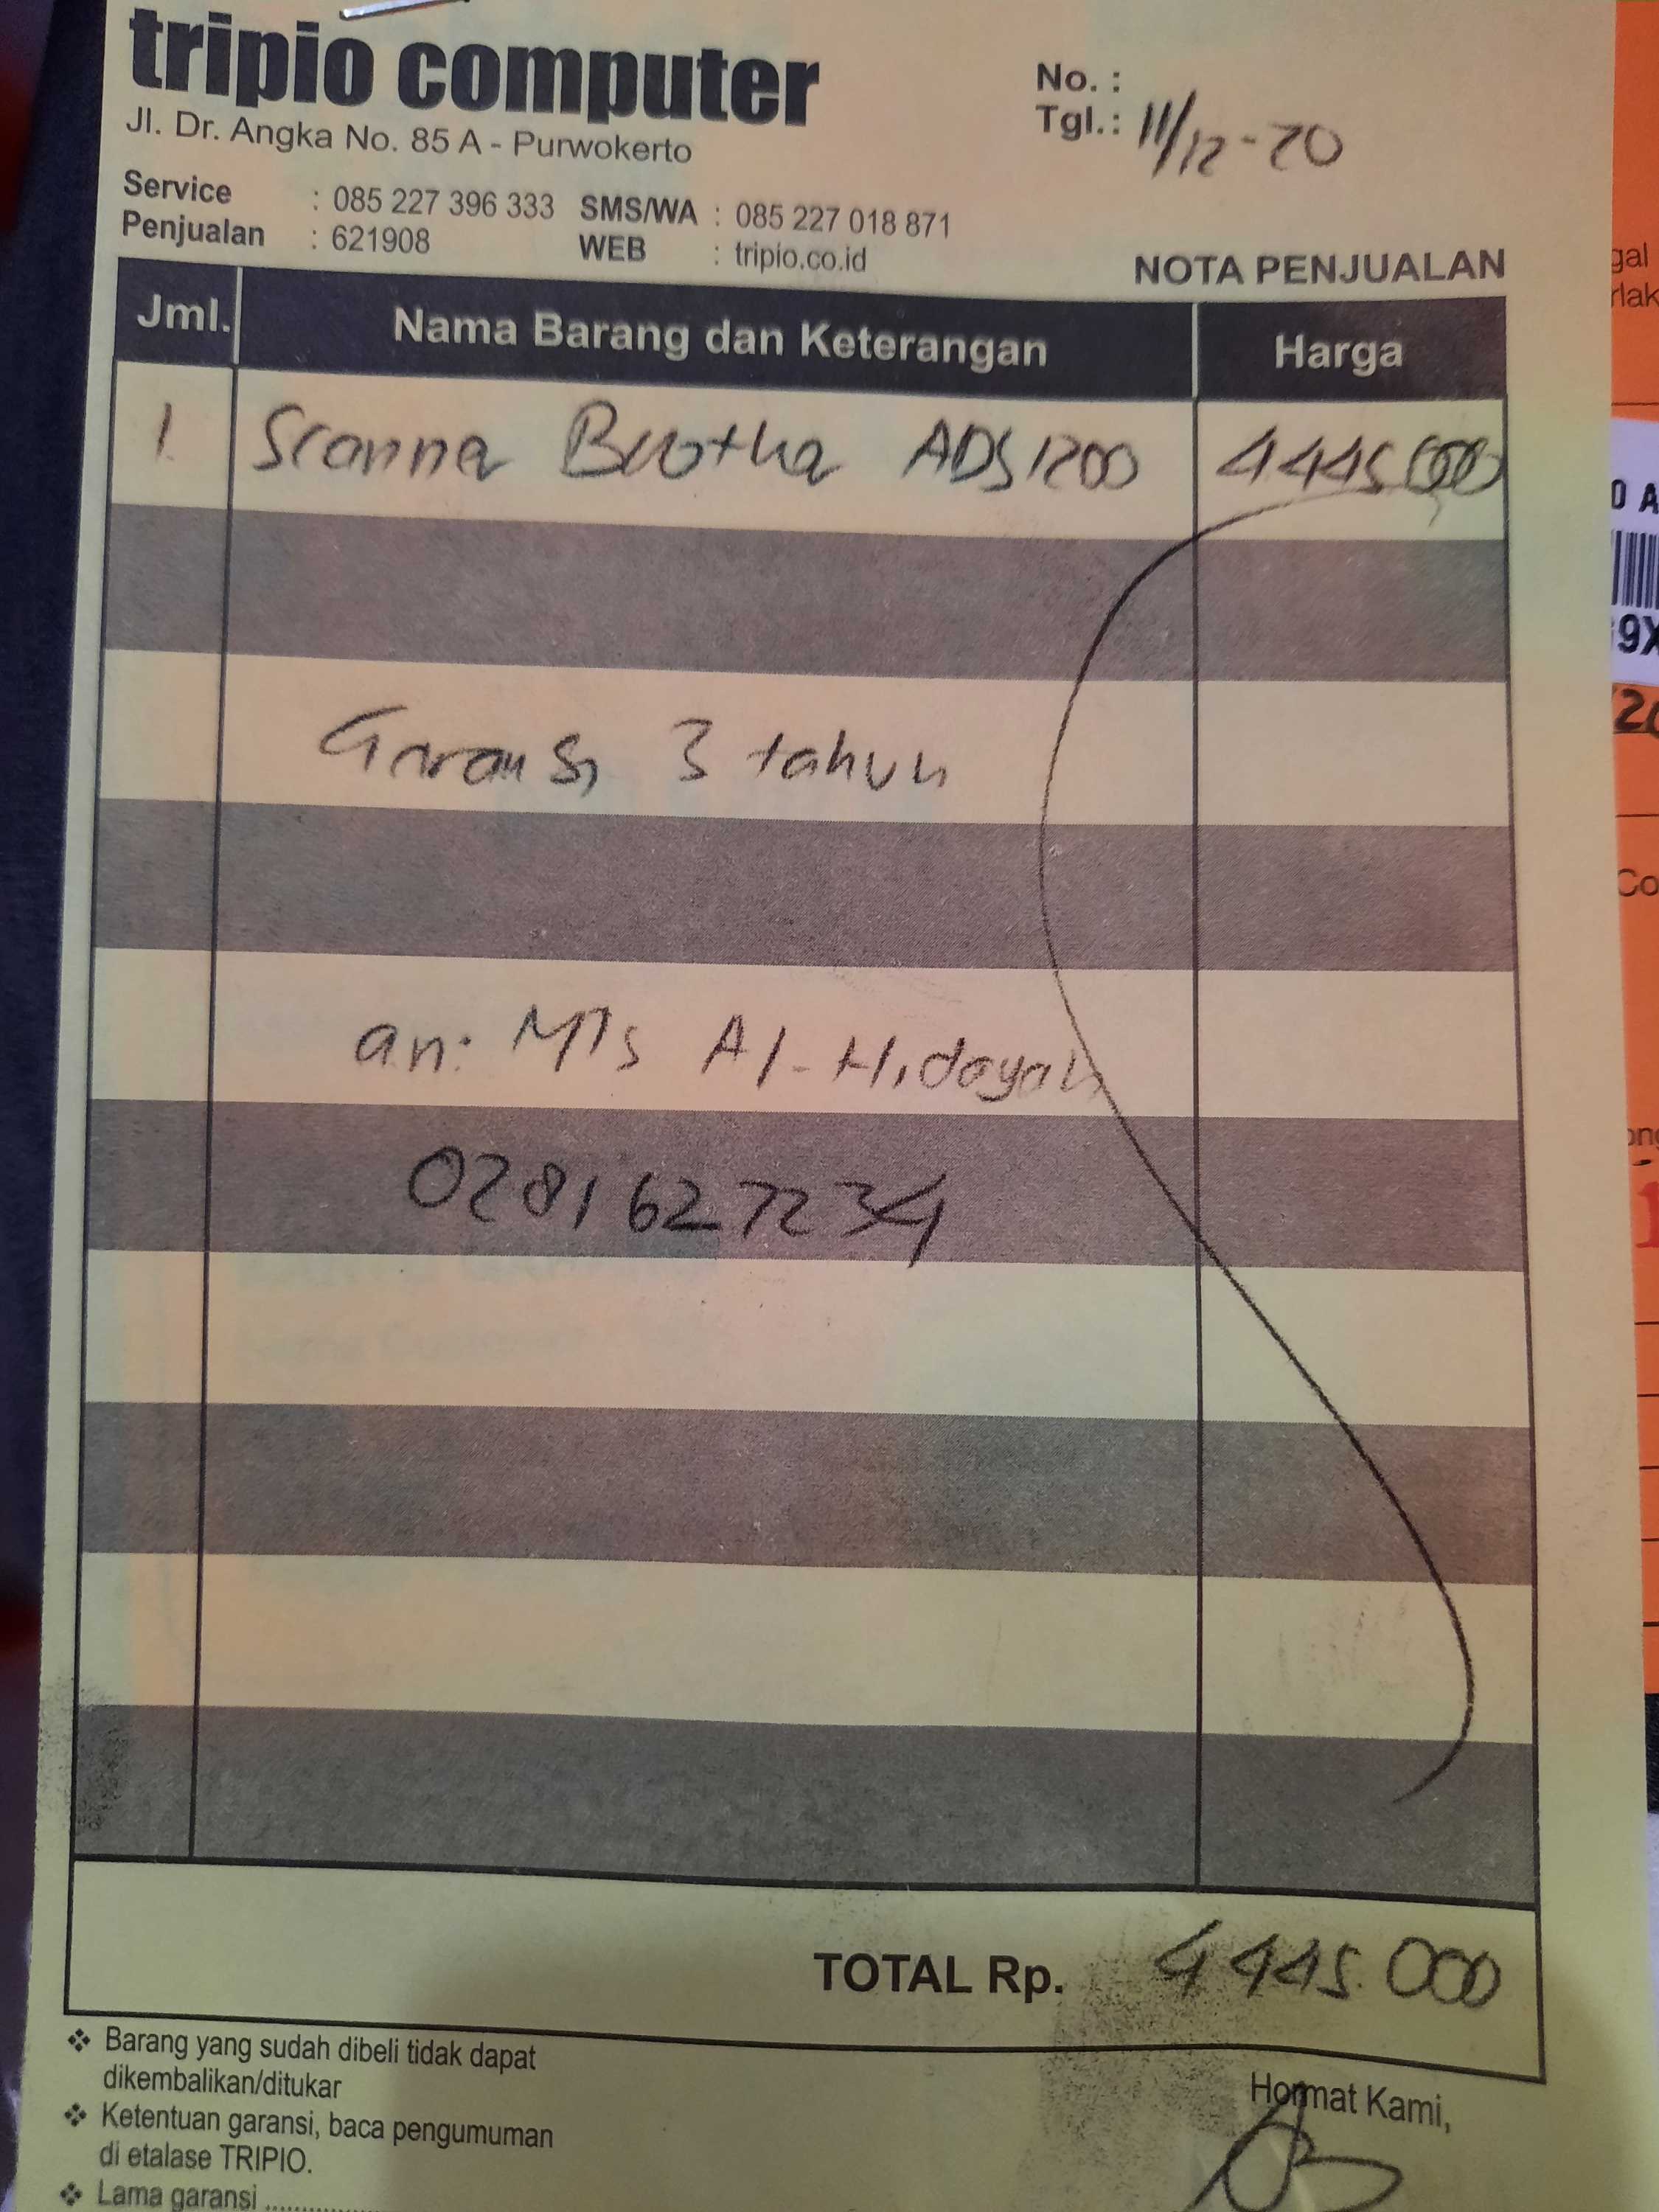 tripio computer
Jl. Dr. Angka No. 85 A - Purwokerto
No. :
Tgl.: 11/12-20
Service : 085 227 396 333 SMS/WA : 085 227 018 871
Penjualan : 621908 WEB : tripio.co.id
NOTA PENJUALAN
Jml. Nama Barang dan Keterangan Harga
1. Scanner Brother ADS1200 4445000
Garansi 3 tahun
an: MTs Al-Hidayah
0281 627234
TOTAL Rp. 4445.000
Barang yang sudah dibeli tidak dapat
dikembalikan/ditukar
Ketentuan garansi, baca pengumuman
di etalase TRIPIO.
Lama garansi ..............
Hormat Kami,